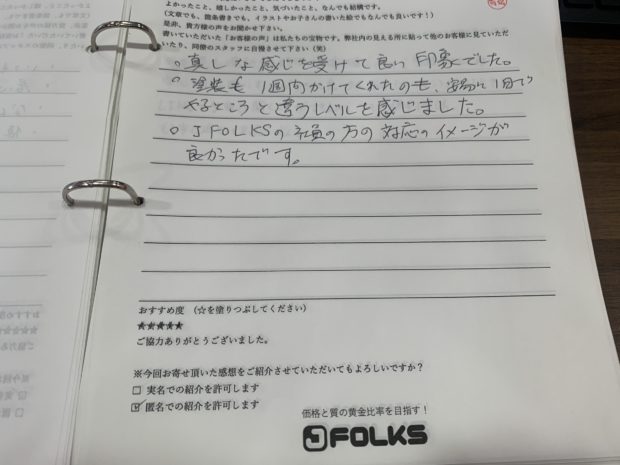 よかったこと、嬉しかったこと、気づいたこと、なんでも結構です。
(文章でも、箇条書きでも、イラストやお子さんの書いた絵でもなんでも良いです！)
是非、貴方様の声をお聞かせ下さい。
書いていただいた「お客様の声」は私たちの宝物です。弊社内の見える所に貼って他のお客様に見ていただいたり、同僚のスタッフに自慢させて下さい(笑)
○ 真しな感じを受けて良い印象でした。
○ 塗装も 1週間かけてくれたのも、安易に1日で
やるところと違うレベルを感じました。
○ J FOLKSの社員の方の対応のイメージが
良かったです。
おすすめ度 (☆を塗りつぶしてください)
★★★★★
ご協力ありがとうございました。
※今回お寄せ頂いた感想をご紹介させていただいてもよろしいですか？
□ 実名での紹介を許可します
☑ 匿名での紹介を許可します
価格と質の黄金比率を目指す！
J FOLKS